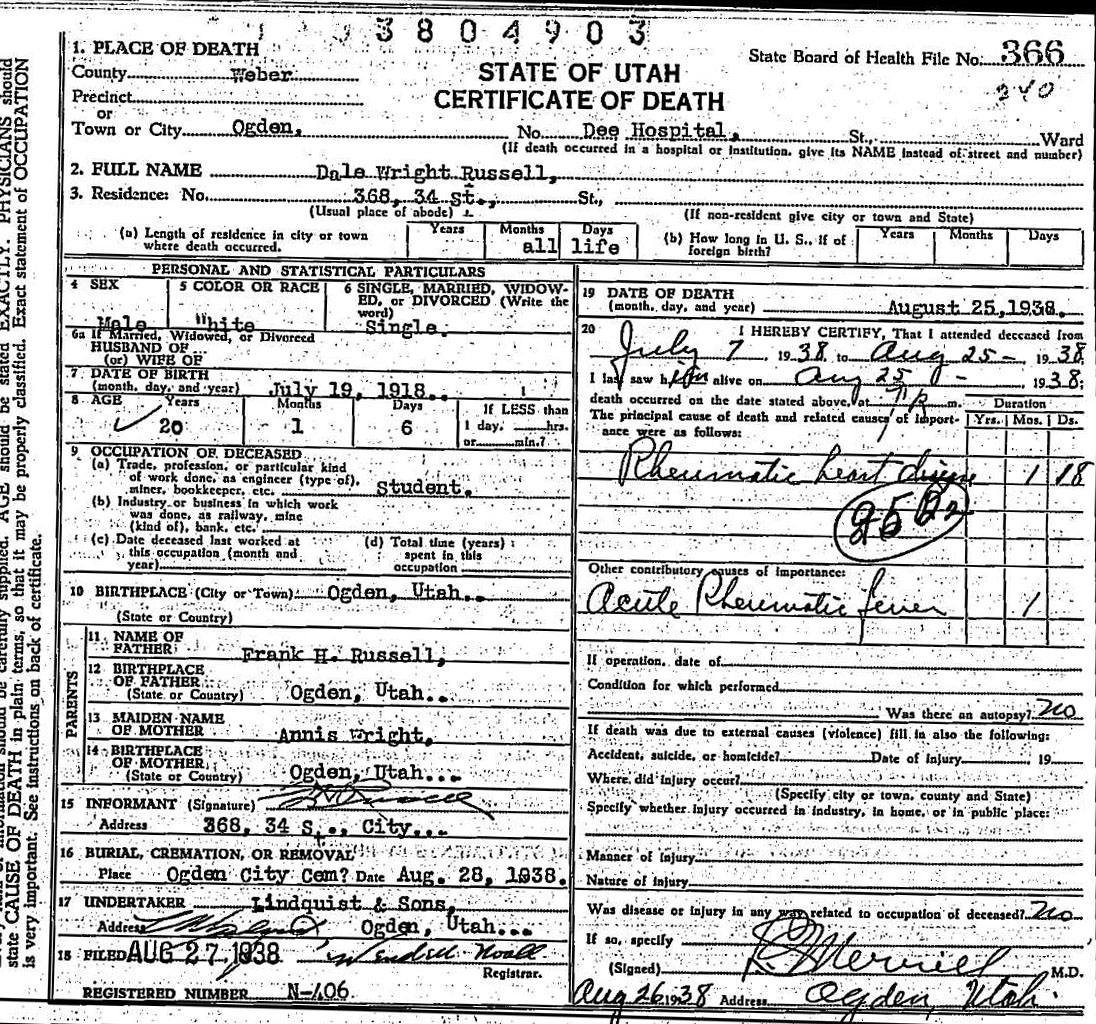 3804903
1. PLACE OF DEATH
State Board of Health File No. 366
County Weber
STATE OF UTAH
240
Precinct
CERTIFICATE OF DEATH
or
Town or City Ogden, No. Dee Hospital, St., Ward
(If death occurred in a hospital or institution, give its NAME instead of street and number)
2. FULL NAME Dale Wright Russell,
3. Residence: No. 368, 34 st., St.,
(Usual place of abode) (If non-resident give city or town and State)
(a) Length of residence in city or town where death occurred. Years Months Days all life (b) How long in U. S., if of foreign birth? Years Months Days
PERSONAL AND STATISTICAL PARTICULARS
4 SEX 5 COLOR OR RACE 6 SINGLE, MARRIED, WIDOW-
ED, or DIVORCED (Write the
word)
Male White Single.
6a If Married, Widowed, or Divorced
HUSBAND OF
(or) WIFE OF
7 DATE OF BIRTH
(month, day, and year) July 19, 1918..
8 AGE Years Months Days If LESS than
20 1 6 1 day, hrs.
or min.?
9 OCCUPATION OF DECEASED
(a) Trade, profession, or particular kind
of work done, as engineer (type of),
miner, bookkeeper, etc. Student.
(b) Industry or business in which work
was done, as railway, mine
(kind of), bank, etc.
(c) Date deceased last worked at (d) Total time (years)
this occupation (month and spent in this
year) occupation
10 BIRTHPLACE (City or Town) Ogden, Utah..
(State or Country)
PARENTS
11 NAME OF
FATHER Frank H. Russell,
12 BIRTHPLACE
OF FATHER
(State or Country) Ogden, Utah..
13 MAIDEN NAME
OF MOTHER Annis Wright,
14 BIRTHPLACE
OF MOTHER
(State or Country) Ogden, Utah...
15 INFORMANT (Signature) Russell
Address 368, 34 St., City...
16 BURIAL, CREMATION, OR REMOVAL
Place Ogden City Cem? Date Aug. 28, 1938.
17 UNDERTAKER Lindquist & Sons,
Address Ogden, Utah...
18 FILED AUG 27 1938 Wendell Noall
Registrar.
REGISTERED NUMBER N-406
19 DATE OF DEATH
(month, day, and year) August 25, 1938.
20 I HEREBY CERTIFY, That I attended deceased from
July 7, 1938 to Aug 25-, 1938
I last saw him alive on Aug 25-, 1938;
death occurred on the date stated above, at m. Duration
The principal cause of death and related causes of import- Yrs. Mos. Ds.
ance were as follows:
Rheumatic heart disease 1 18
Other contributory causes of importance:
Acute Rheumatic fever 1
If operation, date of
Condition for which performed
Was there an autopsy? No
If death was due to external causes (violence) fill in also the following:
Accident, suicide, or homicide? Date of injury 19
Where did injury occur?
(Specify city or town, county and State)
Specify whether injury occurred in industry, in home, or in public place:
Manner of injury
Nature of injury
Was disease or injury in any way related to occupation of deceased? No
If so, specify
(Signed) Merrill M.D.
Aug 26 1938 Address Ogden, Utah.
AGE should be stated EXACTLY. PHYSICIANS should
state CAUSE OF DEATH in plain terms, so that it may be properly classified. Exact statement of OCCUPATION
is very important. See instructions on back of certificate.